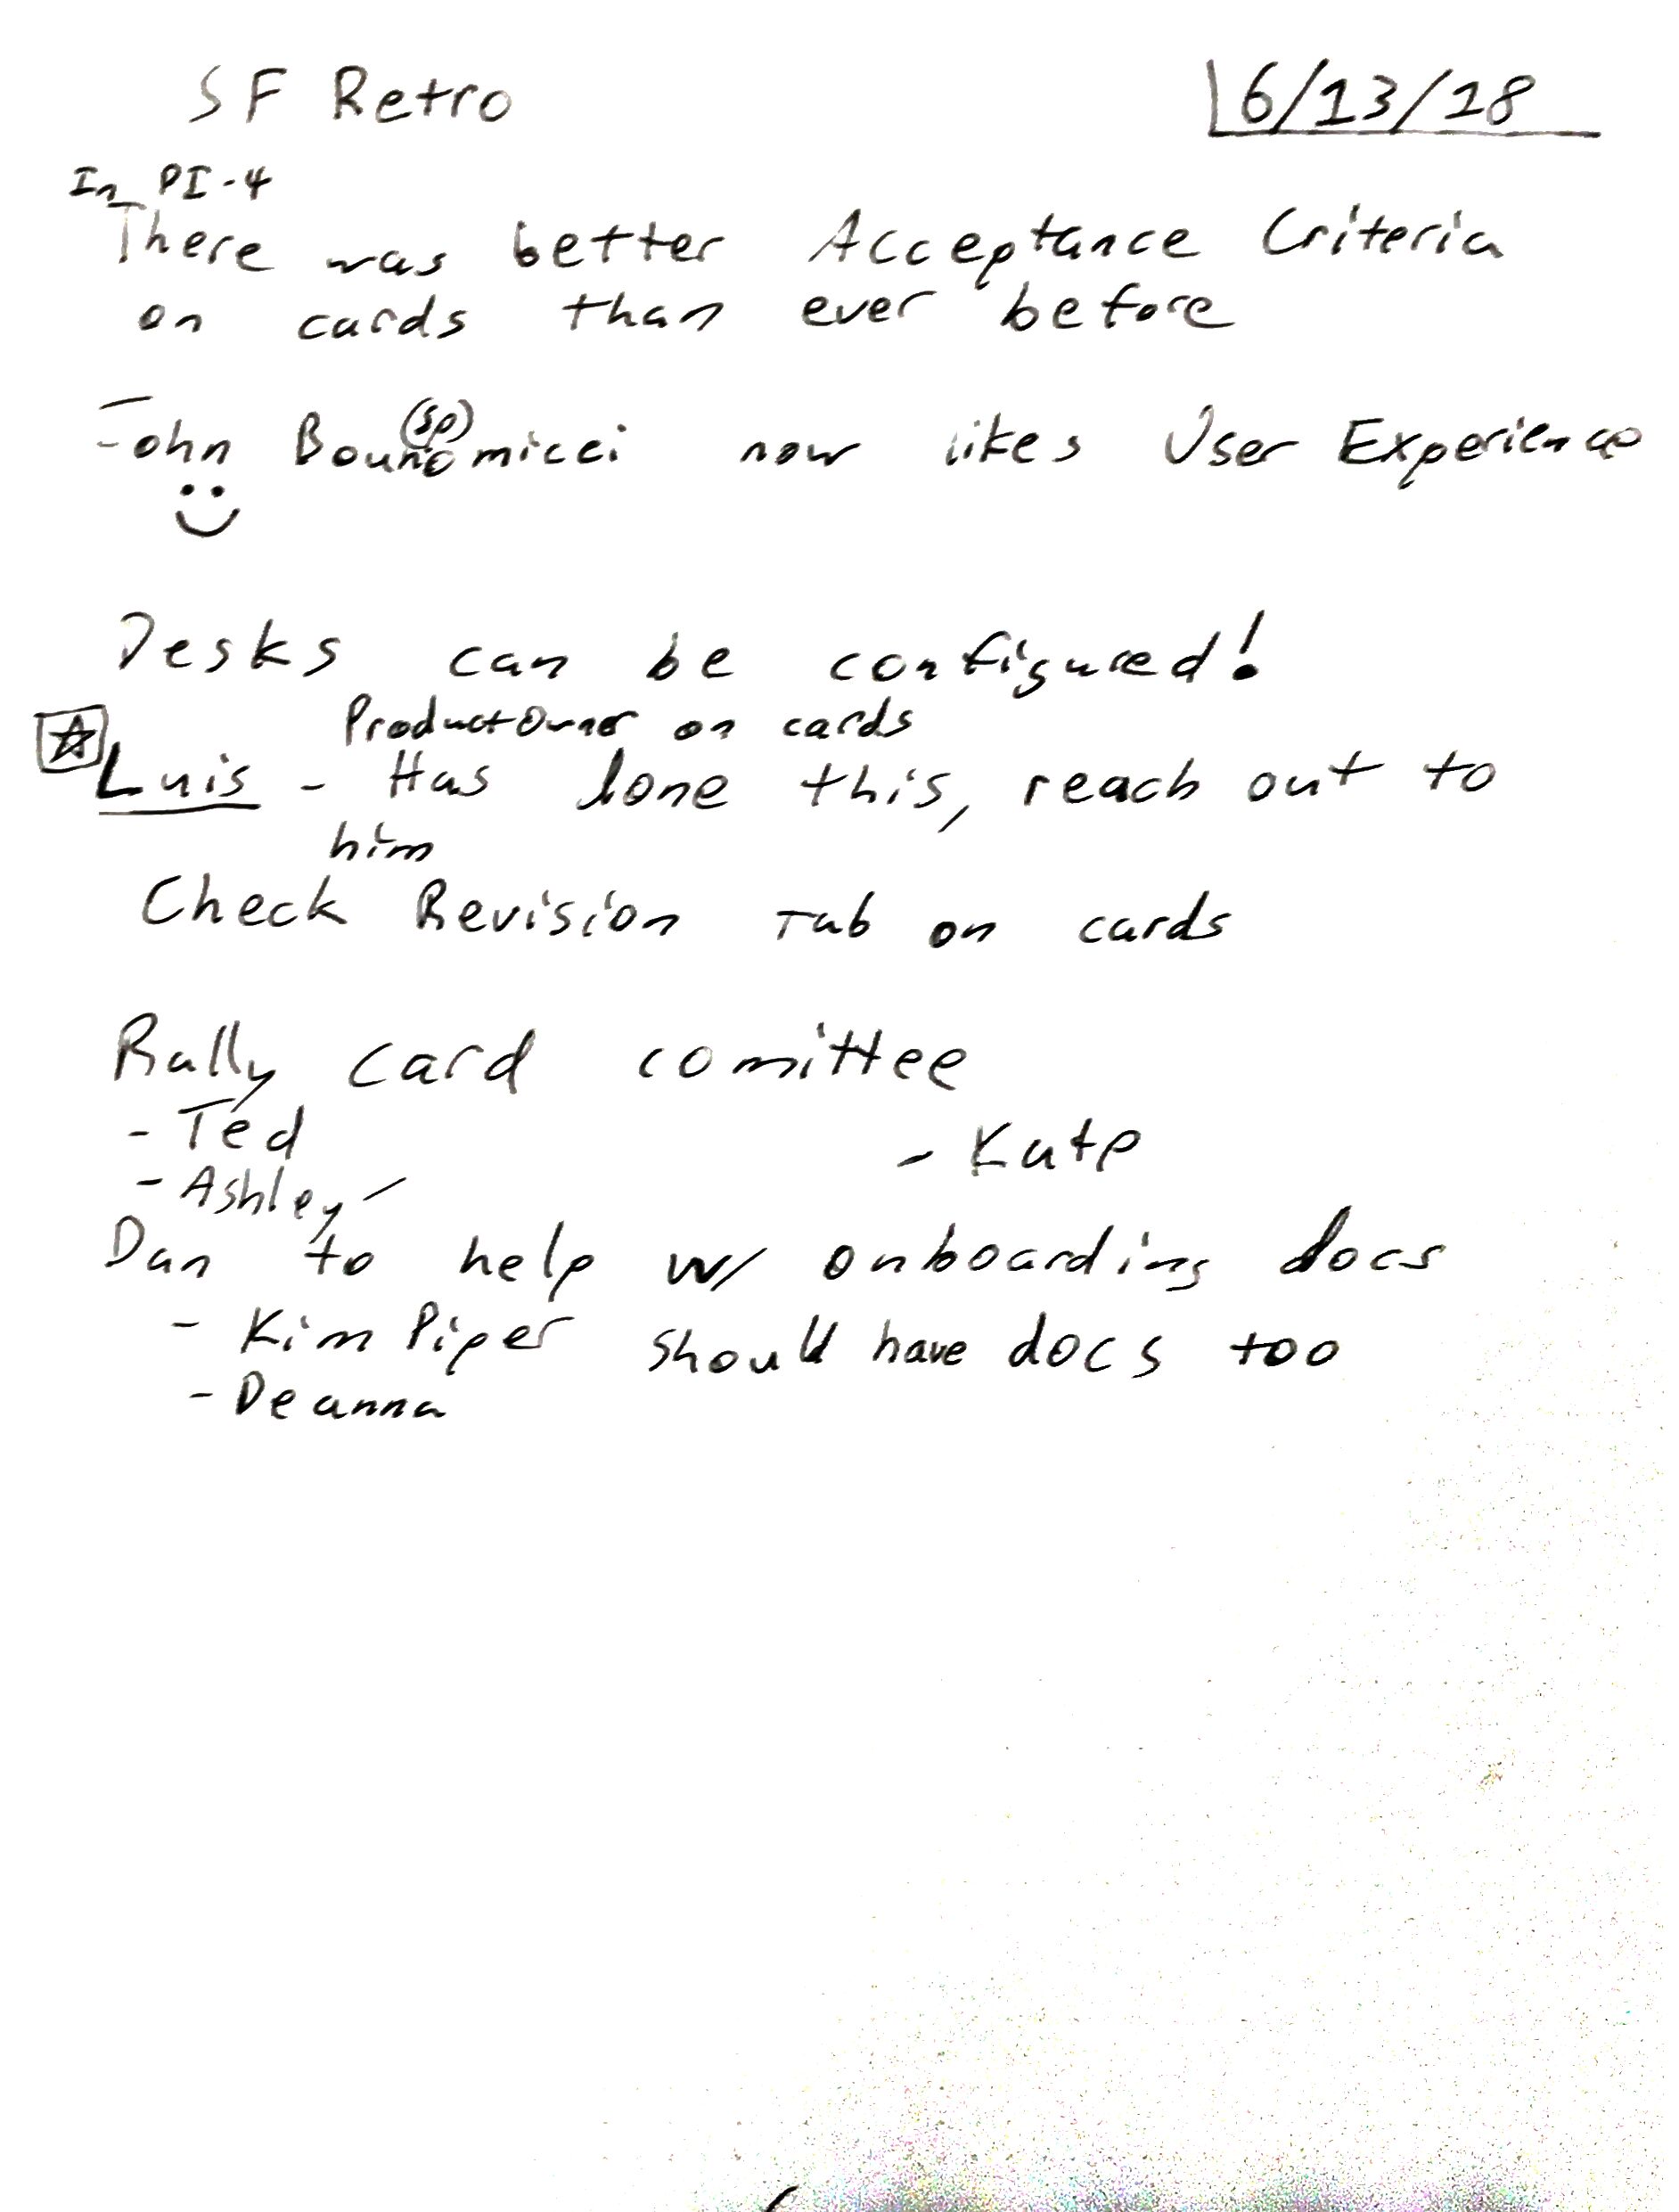 SF Retro 6/13/18
In PI-4
There was better Acceptance Criteria
on cards than ever before
(sp)
John Bounomicci now likes User Experience
Desks can be configured!
Product Owner on cards
Luis - Has done this, reach out to
him
Check Revision Tab on cards
Rally card comittee
- Ted
- Kate
- Ashley
Dan to help w/ onboarding docs
- Kim Piper should have docs too
- Deanna